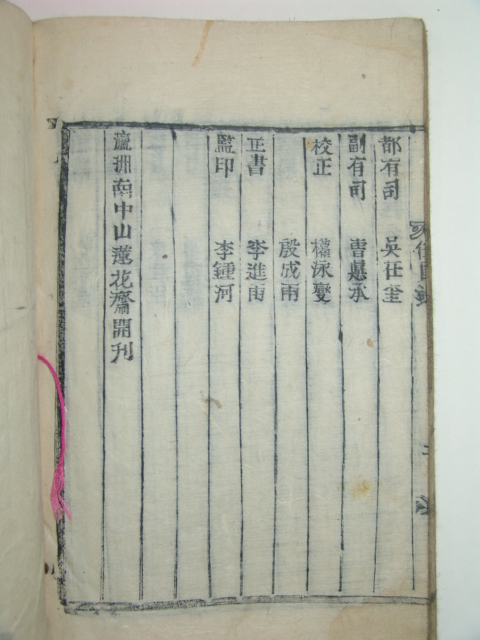 都有司 吳在奎
副有司 曺悳承
校正 權泳燮
殷成雨
正書 李進雨
監印 李鍾河
瀛洲南中山蓮花齋開刊